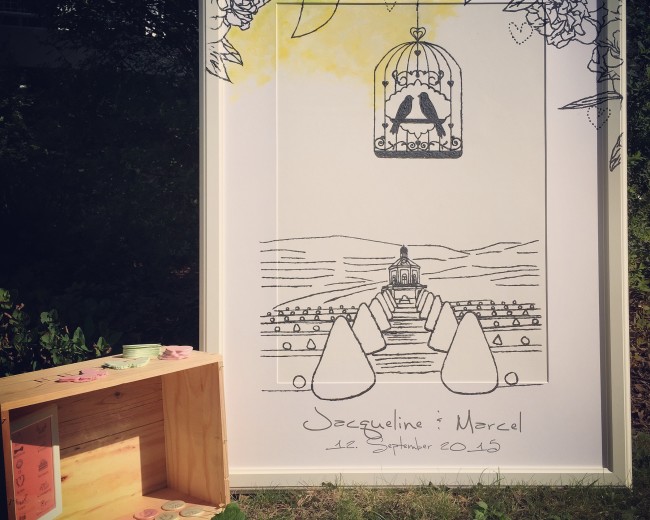 Jacqueline & Marcel
12. September 2015